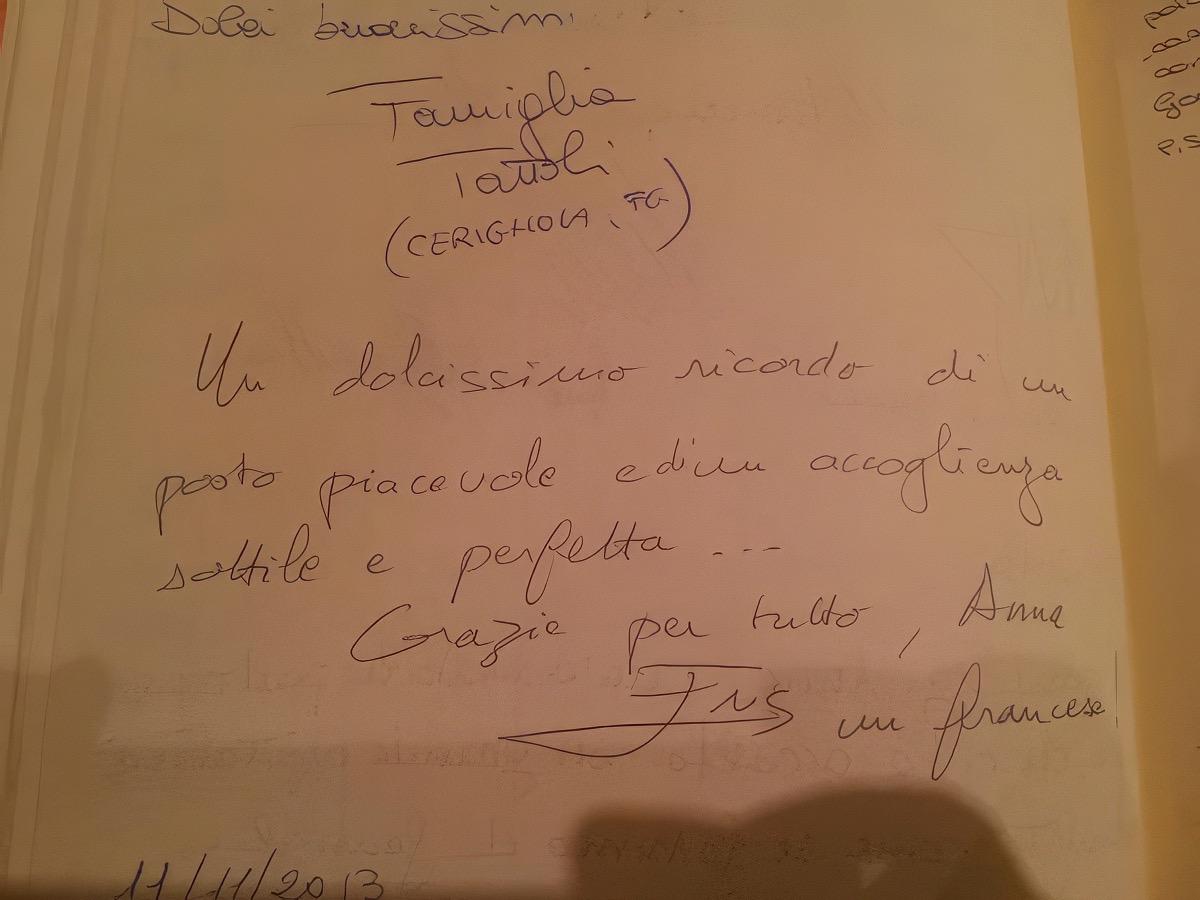 Dolci buonissimi
Famiglia
Tattoli
(CERIGNOLA, FG)
Un dolcissimo ricordo di un
posto piacevole e di un accoglienza
sottile e perfetta ...
Grazie per tutto, Anna
un francese
11/11/2013